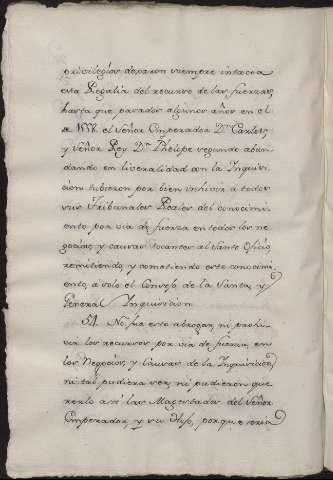 privilegios dexaron siempre intacta
esta Regalia del recurso de las fuerzas,
hasta que pasados algunos años en el
a 1553. el Señor Emperador Dn. Carlos,
y Señor Rey Dn. Phelipe segundo abun-
dando en liveralidad con la Inquisi-
cion tubieron por bien inhivir a todos
sus Tribunales Reales del conocimi-
ento por via de fuerza en todos los ne-
gocios, y causas tocantes al Santo Oficio,
remitiendo, y cometiendo este conocimi-
ento, a solo el Consejo de la Santa, y
General Inquisicion.
54. No fue esto abrogar, ni prohi-
vir los recursos por via de fuerza, en
los Negocios, y Causas de la Inquisicion,
ni tal pudiera ser, ni pudieron que-
rerlo assi las Magestades del Señor
Emperador, y su Hijo, porque seria